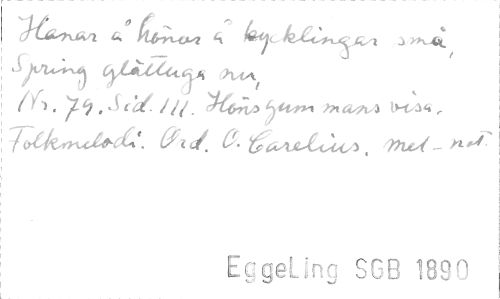 Hanar å hönor å kycklingar små,
Spring glättuga nu,
Nr. 79. Sid. 111. Hönsgummans visa.
Folkmelodi. Ord. O. Carelius. mel-not.
EggeLing SGB 1890